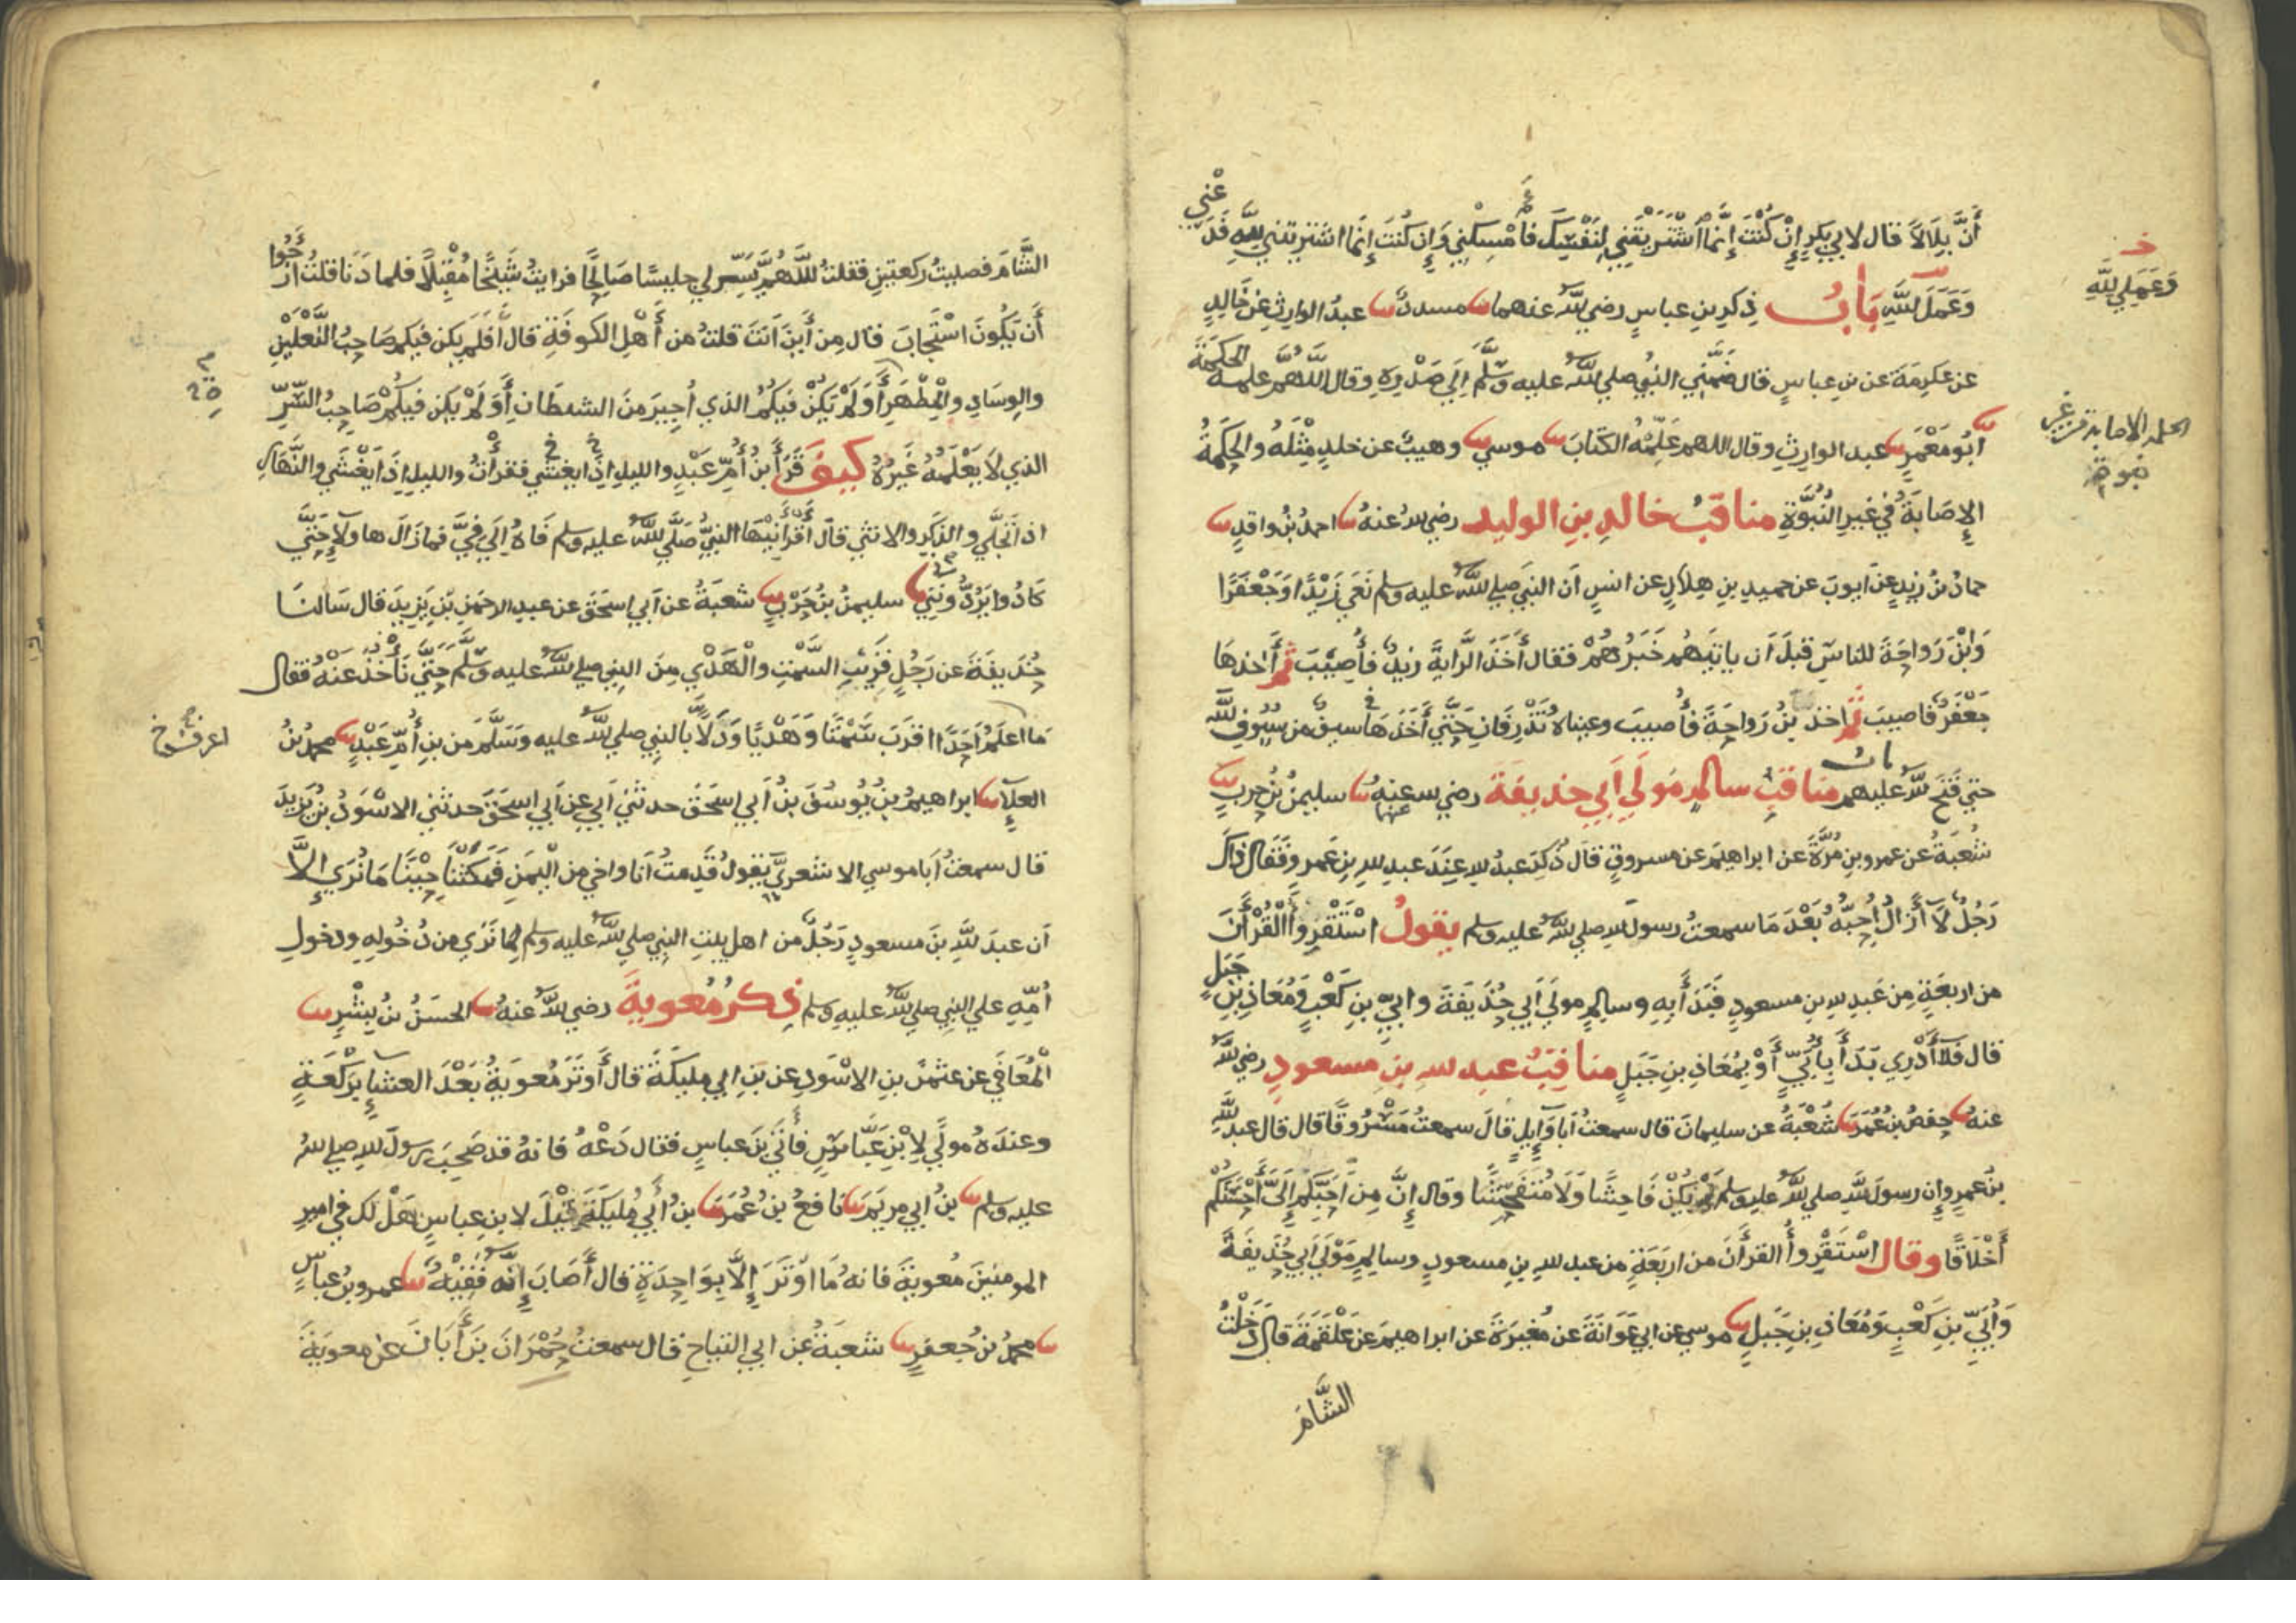 أَنَّ بِلَالاً قال لابي بكرٍ إِنْ كُنْتَ إِنَّما اشْتَرَيْتَنِي لِنَفْسِكَ فأَمْسِكْنِي وَإِن كُنْتَ إِنّما اشتريتني لِلّهِ فَدَعْنِي
وَعَمَلَ اللَّهِ بَابُ ذِكرِ بنِ عباسٍ رضي الله عنهما مسددٌ عبدُ الوارثِ عن خَالِدٍ
عن عكرمَةَ عن بن عباسٍ قال ضَمَّنِي النبيُّ صلي الله عليه وسَلَّمَ إِلَي صَدْرِهِ وقال اللَّهُمَّ علمهُ الحكمَةَ
أَبُو مَعْمَرٍ عبد الوارِثِ وقال اللهم عَلِّمْهُ الكتابَ موسي وهيبٌ عن خلدٍ مِثْلَهُ والحِكْمَةُ
الإِصَابَةُ في غيرِ النُّبُوَّةِ مناقبُ خالدِ بنِ الوليد رضي الله عنهُ احمدُ بنُ واقدٍ
حمادُ بنُ زيدٍ عن ايوبَ عن حميدِ بنِ هِلَالٍ عن انسٍ أن النبيَ صلي الله عليه وسلم نَعَي زَيْدًا وَجَعْفَرًا
وَابْنَ رَوَاحَةَ للناسِ قبلَ أن ياتيَهُم خَبَرُهُمْ فقال أَخَذَ الرَّايةَ زيدٌ فأُصِيْبَ ثم أَخذها
جعْفَرٌ فاصيبَ ثم اخذ بنُ رَواحَةَ فأُصيبَ وعيناهُ تَذْرِفَانِ حَتَّي أَخَذَهَا سيفٌ من سُيُوفِ اللهِ
حتي فَتَحَ اللهُ عليهم بابُ مناقبِ سالمٍ مَولَي أَبِي حذيفةَ رضي الله عنهُ سليمنُ بنُ حربٍ
شُعبَةُ عن عمرِو بنِ مُرَّةَ عن ابراهيمَ عن مسروقٍ قال ذُكِرَ عبدُ اللهِ عِندَ عبدِ اللهِ بنِ عَمرٍو فَقال ذاكَ
رَجُلٌ لَا أَزَالُ أُحِبُّهُ بَعْدَ مَا سمعتُ رسولَ اللهِ صلي الله عليه وسلم يقولُ اسْتَقْرِؤا الْقُرْأنَ
من اربعَةٍ مِن عَبدِ اللهِ بنِ مسعودٍ فَبَدَأَ بِهِ وسالِمٍ مولَي أَبِي حُذَيفَةَ وابيِّ بنِ كَعْبٍ وَمُعَاذِ بنِ جَبَلٍ
قال فَلَا أَدْرِي بَدَأَ بِأُبَيٍّ أَوْ بِمُعَاذِ بنِ جَبَلٍ مناقبُ عبد الله بنِ مسعودٍ رضي الله
عنهُ حفصُ بنُ عُمَرَ شُعْبَةُ عن سليمانَ قال سمعتُ أبا وَآئِلٍ قالَ سمعتُ مَسْرُوقًا قال قال عبدُ اللَّهِ
بنُ عَمرٍو إِن رسولَ اللَّهِ صلي الله عليه وسلم لَمْ يَكُنْ فَاحِشًا وَلَا مُتَفَحِّشًا وقال إِنَّ مِنْ أَحَبِّكُمْ إِلَيَّ أَحْسَنَكُم
أَخْلَاقًا وقال اسْتَقْرِؤُا القرأنَ من اربَعَةٍ من عبد اللهِ بنِ مسعودٍ وسالِمٍ مَوْلَي أَبِي حُذَيفَةَ
وَأُبَيِّ بنِ كَعْبٍ وَمُعَاذِ بنِ جَبَلٍ موسي عن ابي عَوَانَةَ عن مُغِيرَةَ عن ابراهيمَ عن عَلْقَمَةَ قال دَخَلْتُ
الشَّامَ
خـ
وَعَمَلِي لِلَّهِ
الحكمة الاصابة من غير
نبوة
الشَّامَ فصليتُ ركعتينِ فقلتُ اللَّهُمَّ يَسِّر لي جليسًا صَالِحًا فرايتُ شَيْخًا مُقْبِلًا فلما دَنَا قلتُ أَرْجُوا
أَن يَكُونَ اسْتَجَابَ قال مِن أَيْنَ أَنتَ قلتُ من أَهْلِ الكوفَةِ قال أَفَلَمْ يكن فيكم صَاحِبُ النَّعْلَيْنِ
والوِسَادِ والْمِطْهَرِ أَوَلَمْ يَكُنْ فيكُمُ الذي أُجِيرَ مِنَ الشيطَانِ أَوَلَمْ يَكن فيكُمْ صَاحِبُ السِّرِّ
الذي لَا يَعْلَمُهُ غَيْرُهُ كيفَ قَرَأَ بنُ أُمِّ عَبْدٍ والليلِ إِذَا يغشَي فقرأْتُ والليلِ إِذَا يَغْشَي والنَّهَارِ
اذا تَجَلَّي والذَّكَرِ والانثي قال أَقْرَأَنِيْهَا النبيُّ صَلَّي الله عليه وسلم فَاهُ إِلَي فِيَّ فمازَالَ هاولَآءِ حَتَّي
كَادُوا يَرُدُّونَنِي سليمنُ بنُ حَرْبٍ شعبَةُ عن أَبي اسحَقَ عن عبدِ الرحمَنِ بنِ يَزِيدَ قال سَالنَا
حُذَيفَةَ عن رَجُلٍ قَرِيبِ السَّمْتِ والْهَدْيِ مِنَ النبيِ صلي الله عليه وسَلَّمَ حَتَّي نَأْخُذَ عَنْهُ فقال
مَا اعلَمُ أَحَدًا اقرَبَ سَمْتًا وَهَدْيًا وَدَلًّا بالنبيِ صلي الله عليه وَسَلَّمَ من بنِ أُمِّ عَبْدٍ محمدُ بنُ
العلآءِ ابراهيمُ بنُ يُوسُفَ بنِ أَبي اسحَقَ حدثني أَبي عن أَبي اسحَقَ حدثني الاسْوَدُ بنُ يَزِيدَ
قال سمعتُ أَبا موسي الاشعريَّ يقولُ قَدِمتُ أنا واخي من الْيَمَنِ فَمَكَثْنَا حِيْنًا مَا نُرَي إِلَّا
أن عبدَ اللَّهِ بنَ مسعودٍ رَجُلٌ من اهل بيتِ النبيِ صلي الله عليه وسلم لِمَا نَرَي من دُخُولِهِ ودخولِ
أُمِّهِ علي النبيِ صلي الله عليهِ وسلم ذكرُ مُعويةَ رضي الله عنهُ الحسَنُ بنُ بِشْرٍ
الْمُعَافَي عن عثمنَ بنِ الاسْوَدِ عن بنِ ابي مليكَةَ قال أَوتَرَ مُعويَةُ بَعْدَ العشآءِ بِرَكْعَةٍ
وعندَهُ مولًي لِابْنِ عَبَّاسٍ فأَتَي بنَ عباسٍ فقال دَعْهُ فانهُ قد صَحِبَ رسولَ اللهِ صلي اللهُ
عليه وسلم بنُ ابي مريَمَ نافعُ بنُ عُمَرَ بنُ أَبي مُلَيكَةَ قِيْلَ لابنِ عباسٍ هَلْ لك في اميرِ
المومنينَ مُعويةَ فانهُ مَا اوْتَرَ إِلَّا بِوَاحِدَةٍ قال أَصَابَ إِنَّه فَقِيْهٌ عمرو بنُ عباسٍ
محمدُ بنُ جعفرٍ شعبَةُ عن ابي التياحِ قال سمعتُ حُمْرَانَ بنَ أَبَانَ عن معويَةَ
اعرف